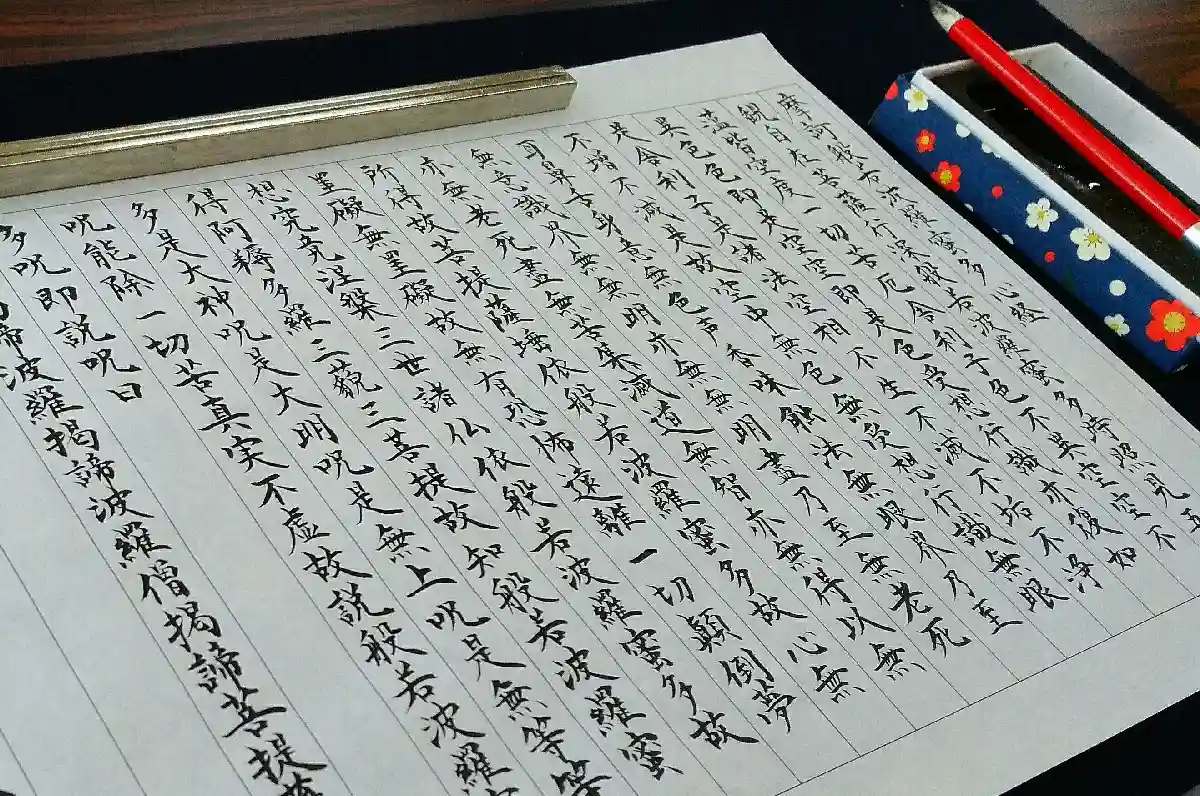 摩訶般若波羅蜜多心経
観自在菩薩行深般若波羅蜜多時照見五
蘊皆空度一切苦厄舎利子色不異空空不
異色色即是空空即是色受想行識亦復如
是舎利子是諸法空相不生不滅不垢不浄
不増不減是故空中無色無受想行識無眼
耳鼻舌身意無色声香味触法無眼界乃至
無意識界無無明亦無無明盡乃至無老死
亦無老死盡無苦集滅道無智亦無得以無
所得故菩提薩埵依般若波羅蜜多故心無
罣礙無罣礙故無有恐怖遠離一切顛倒夢
想究竟涅槃三世諸仏依般若波羅蜜多故
得阿耨多羅三藐三菩提故知般若波羅蜜
多是大神呪是大明呪是無上呪是無等等
呪能除一切苦真実不虚故説般若波羅
多呪即説呪曰
諦波羅掲諦波羅僧掲諦菩提薩